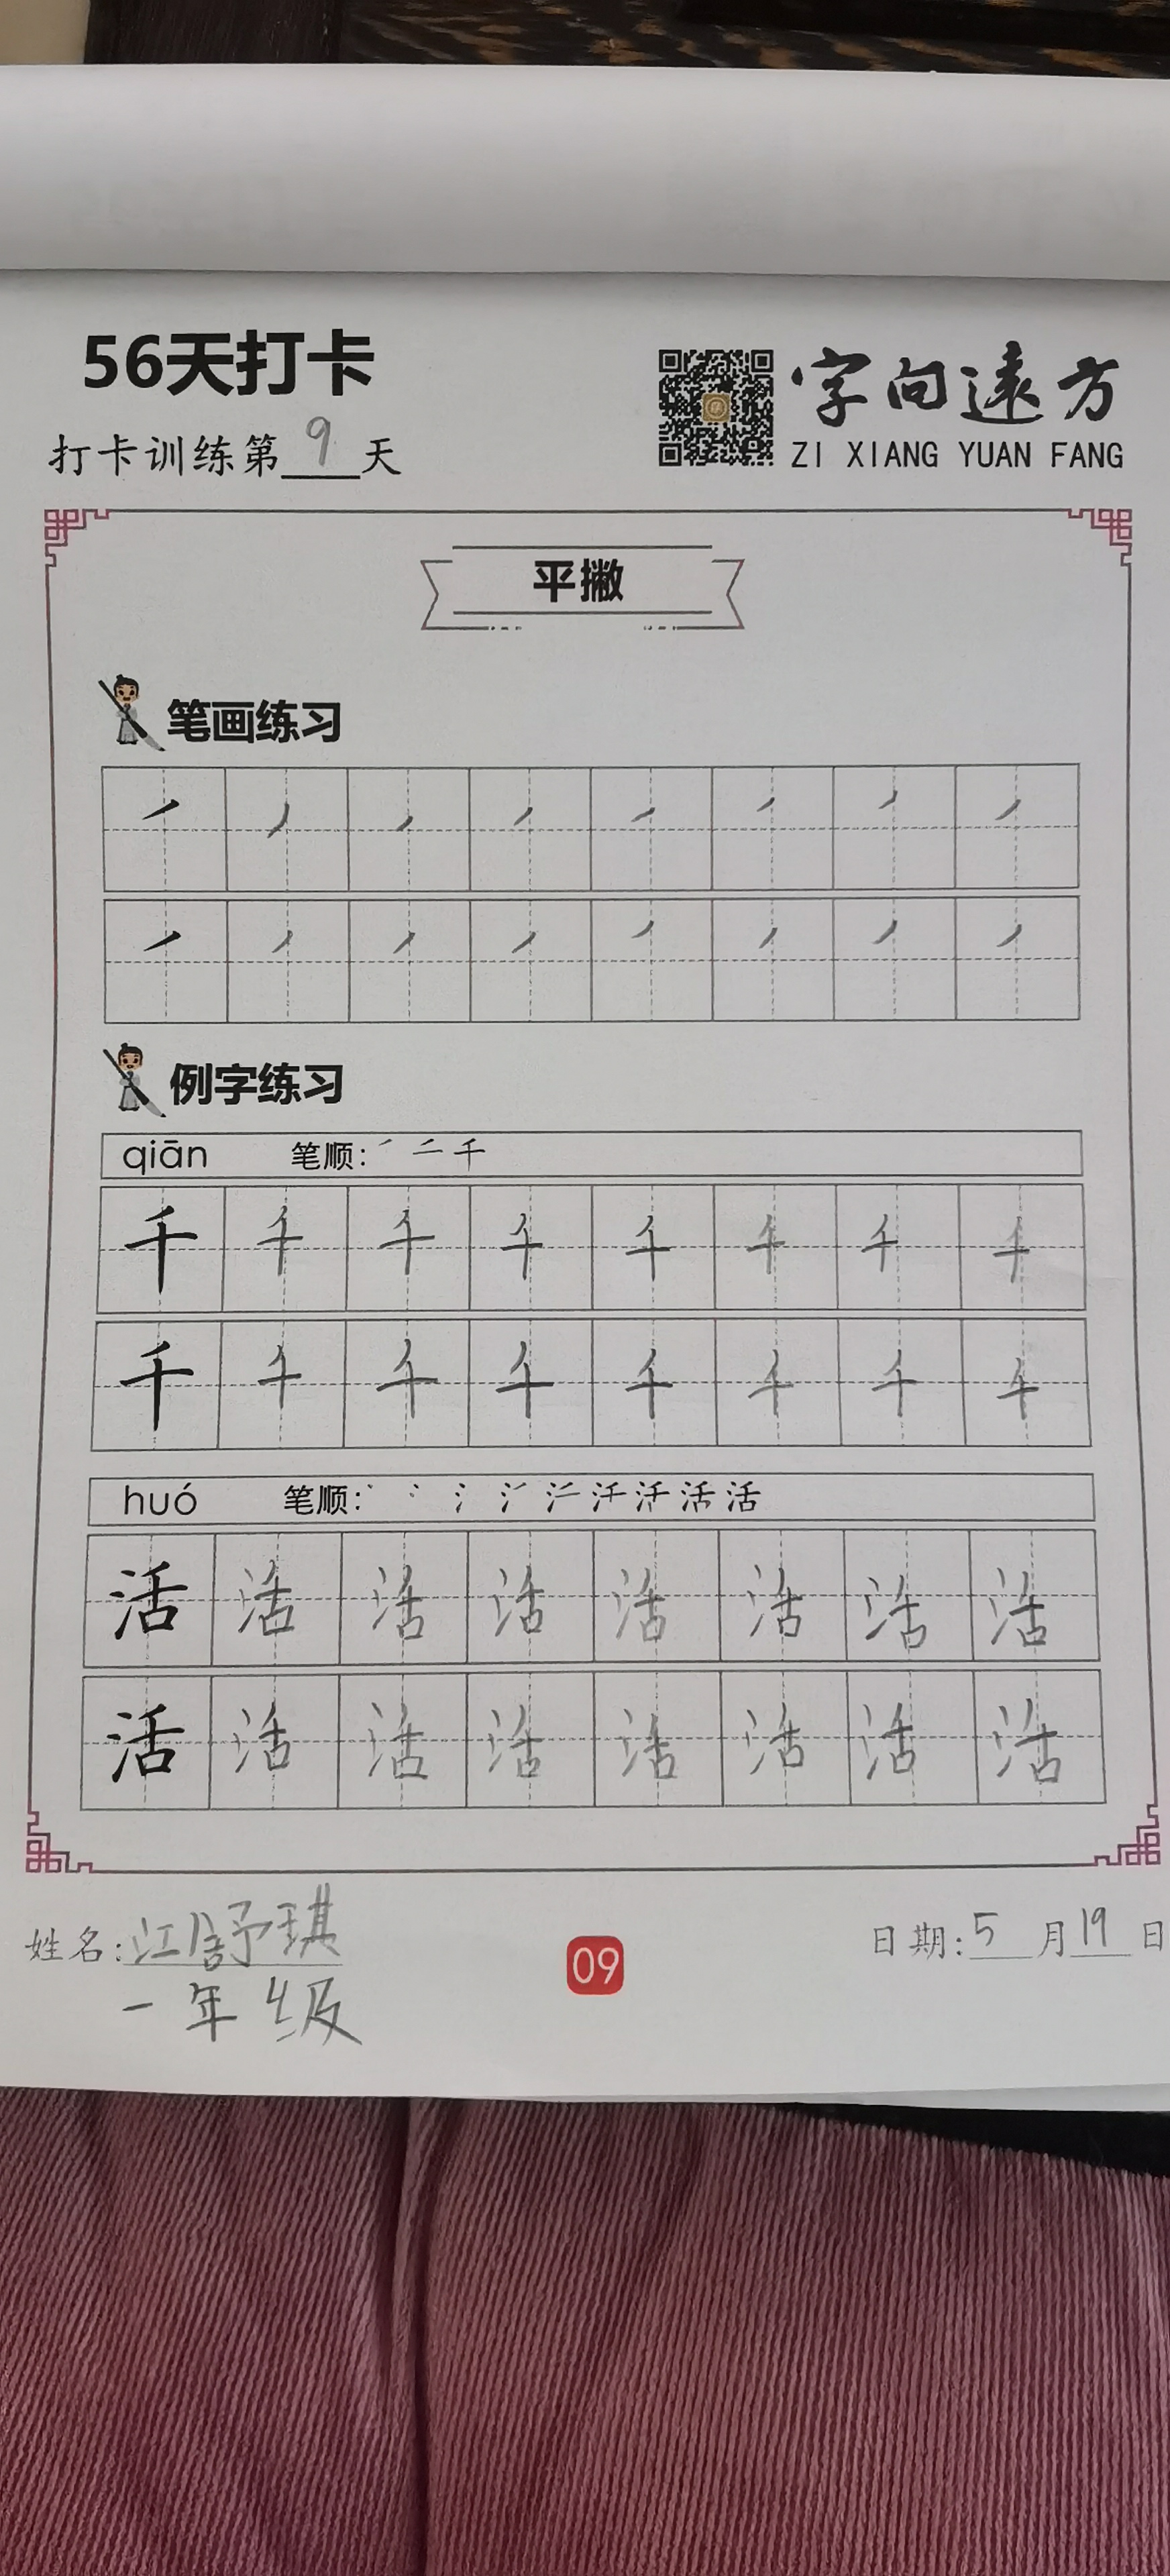 56天打卡
打卡训练第9天
字向遠方
ZI XIANG YUAN FANG
平撇
笔画练习
例字练习
qiān 笔顺: ㇒ 二 千
千 千 千 千 千 千 千 千
千 千 千 千 千 千 千 千
huó 笔顺: 活
活 活 活 活 活 活 活 活
活 活 活 活 活 活 活 活
姓名: 江舒琪
09
日期: 5月19日
一年级